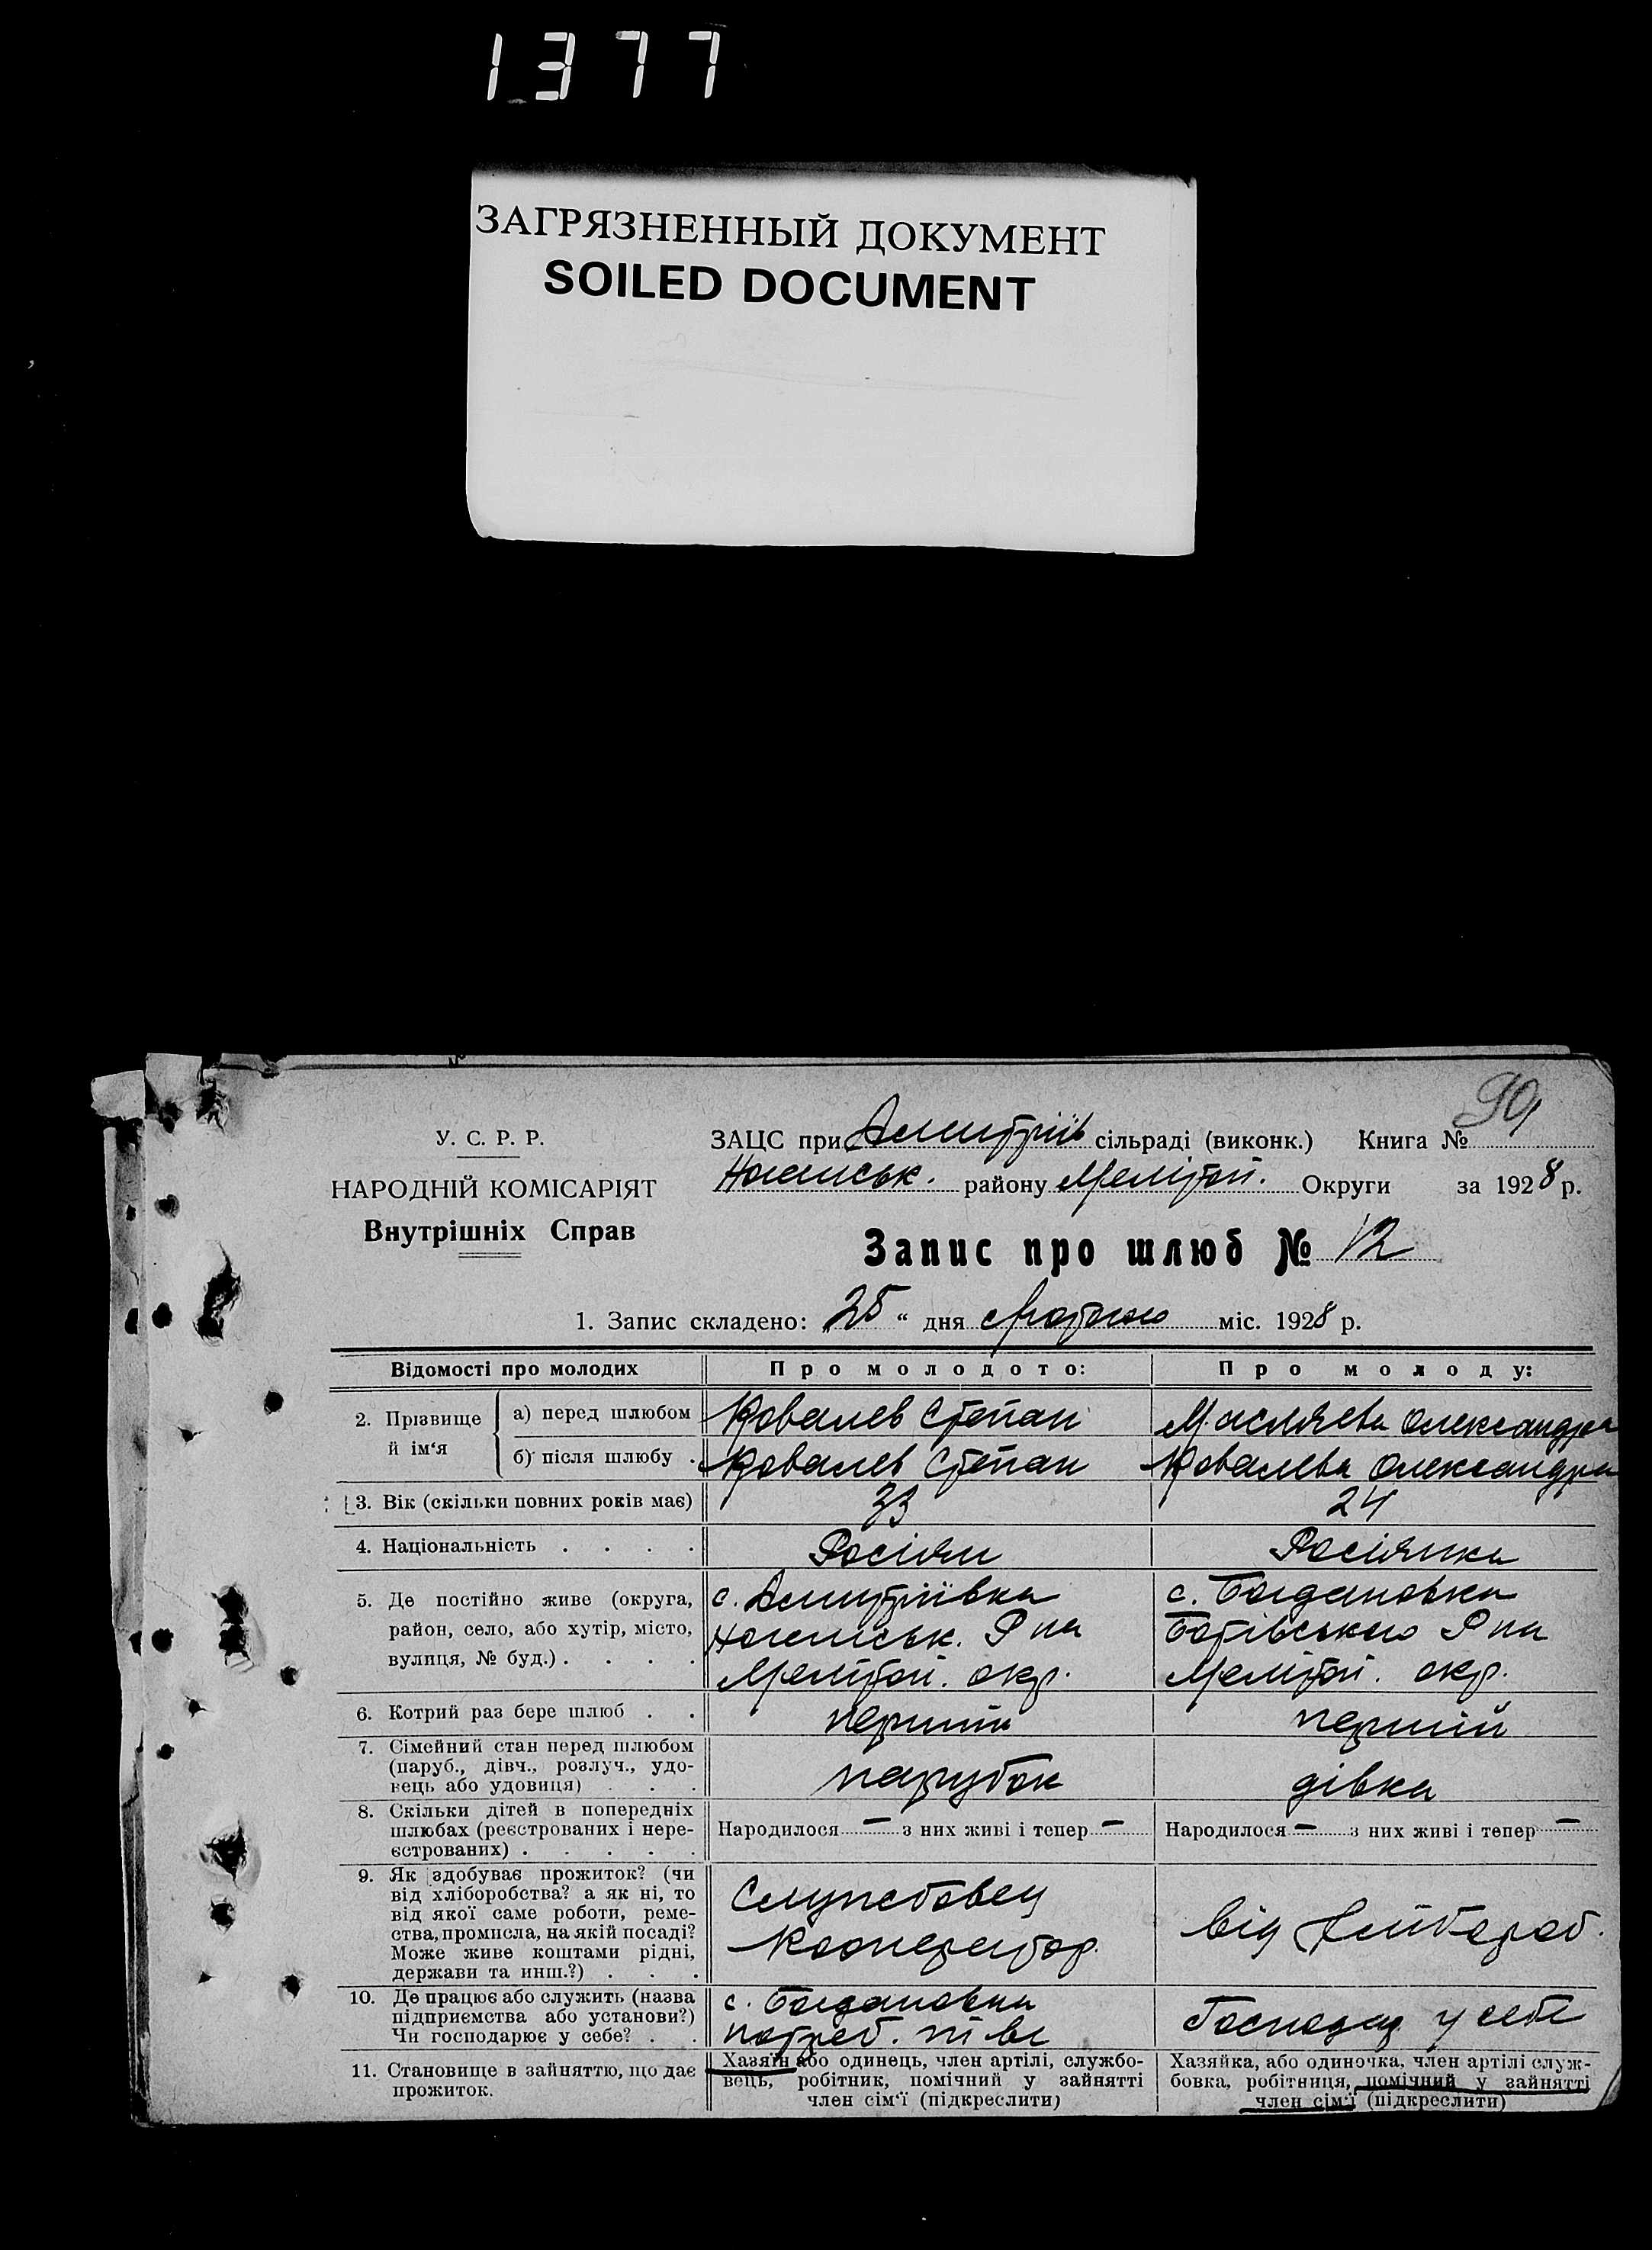 1377
ЗАГРЯЗНЕННЫЙ ДОКУМЕНТ
SOILED DOCUMENT
90
У. С. Р. Р.
НАРОДНІЙ КОМІСАРІЯТ
Внутрішніх Справ
ЗАЦС при Дмитріїв сільраді (виконк.) Книга №
Ногайськ. району Мелітоп. Округи за 1928 р.
Запис про шлюб № 12
1. Запис складено: „25“ дня Лютого міс. 1928 р.
Відомості про молодих
Про молодого:
Про молоду:
2. Прізвище й ім‘я
а) перед шлюбом
Ковалев Степан
Масляева Олександра
б) після шлюбу .
Ковалев Степан
Ковалева Олександра
3. Вік (скільки повних років має)
23
24
4. Національність . . . .
Росіян
Росіянка
5. Де постійно живе (округа,
район, село, або хутір, місто,
вулиця, № буд.) . . . .
с. Дмитріївка
Ногайськ. Р на
Мелітоп. окр.
с. Богдановка
Ботівського Р на
Мелітоп. окр.
6. Котрий раз бере шлюб . .
перший
перший
7. Сімейний стан перед шлюбом
(паруб., дівч., розлуч., удо-
вець або удовиця) . . .
парубок
дівка
8. Скільки дітей в попередніх
шлюбах (реєстрованих і нере-
єстрованих) . . . . .
Народилося — з них живі і тепер —
Народилося — з них живі і тепер —
9. Як здобуває прожиток? (чи
від хліборобства? а як ні, то
від якої саме роботи, реме-
ства, промисла, на якій посаді?
Може живе коштами рідні,
держави та инш.?) . . .
Службовец
Кооператор.
від Хлібороб.
10. Де працює або служить (назва
підприємства або установи?)
Чи господарює у себе? . .
с. Богдановка
потреб. т-ве
Господар у себе
11. Становище в зайняттю, що дає
прожиток.
Хазяїн або одинець, член артілі, службо-
вець, робітник, помічний у зайнятті
член сім‘ї (підкреслити)
Хазяйка, або одиночка, член артілі служ-
бовка, робітниця, помічний у зайнятті
член сім‘ї (підкреслити)